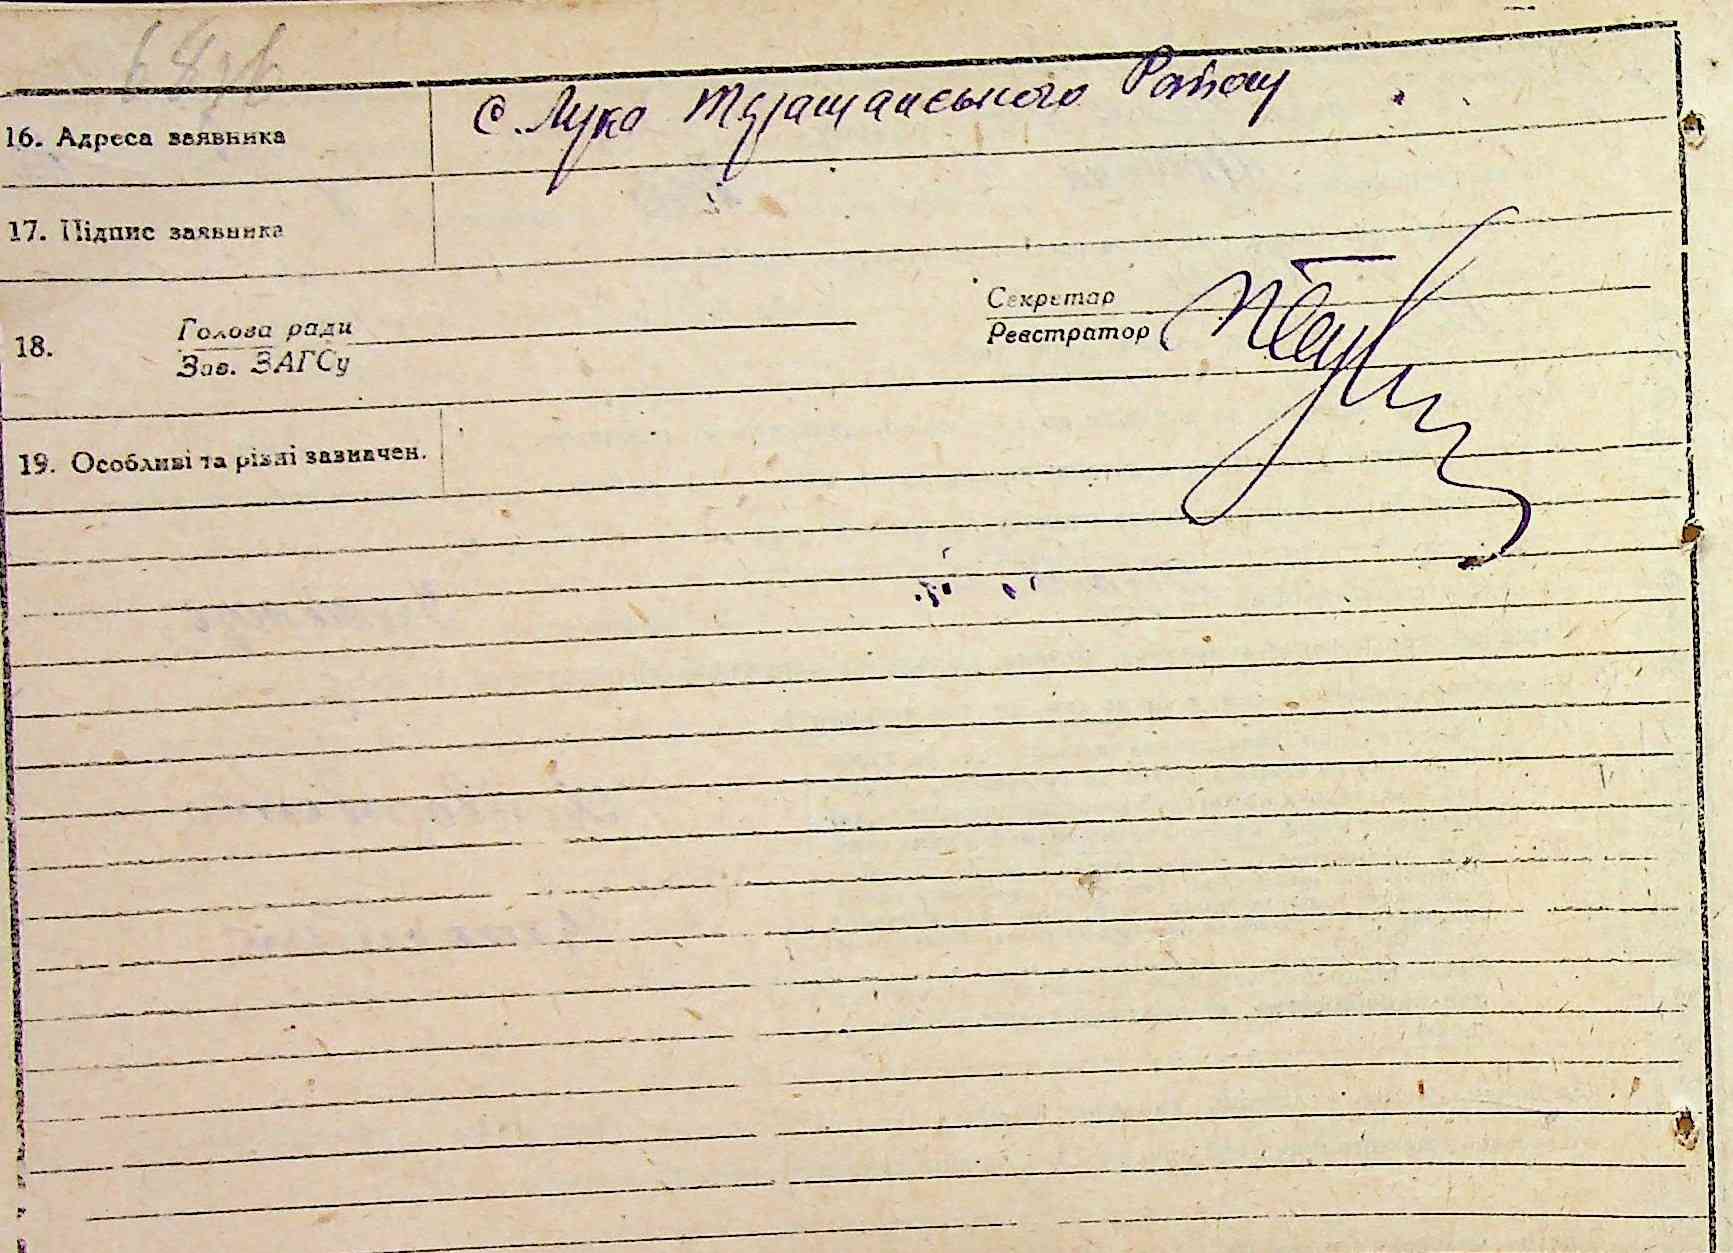 16. Адреса заявника
с. Лука Таращанського Району
17. Підпис заявника
18.
Голова ради
Зав. ЗАГСу
Секретар
Реєстратор
19. Особливі та різні зазначен.